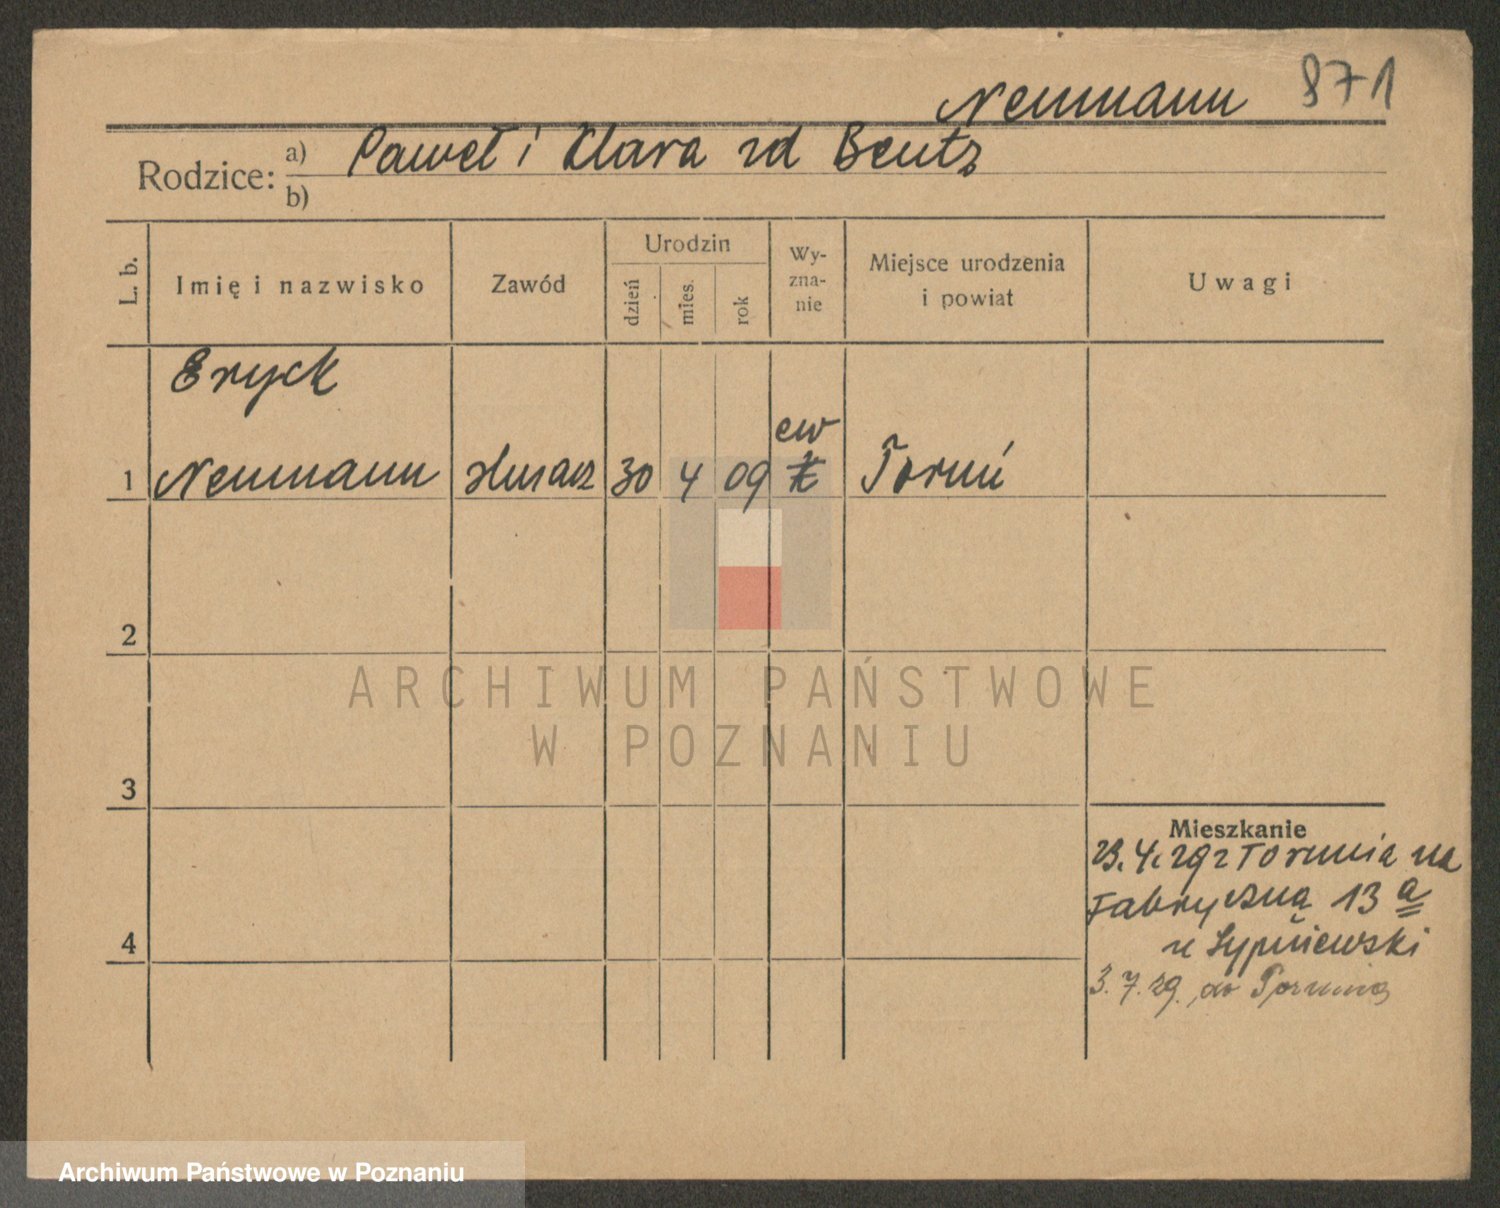 871
Neumann
Rodzice: a) Paweł i Klara zd Beutz
b)
L. b.
Imię i nazwisko
Zawód
Urodzin
dzień
mies.
rok
Wy-
zna-
nie
Miejsce urodzenia
i powiat
Uwagi
Eryck
ew
1 Neumann ślusarz 30 4 09 Toruń
2
3
4
Mieszkanie
23.4.29 z Torunia na
Fabryczną 13 a
u Sypniewski
3.7.29. do Torunia
ARCHIWUM PAŃSTWOWE
W POZNANIU
Archiwum Państwowe w Poznaniu